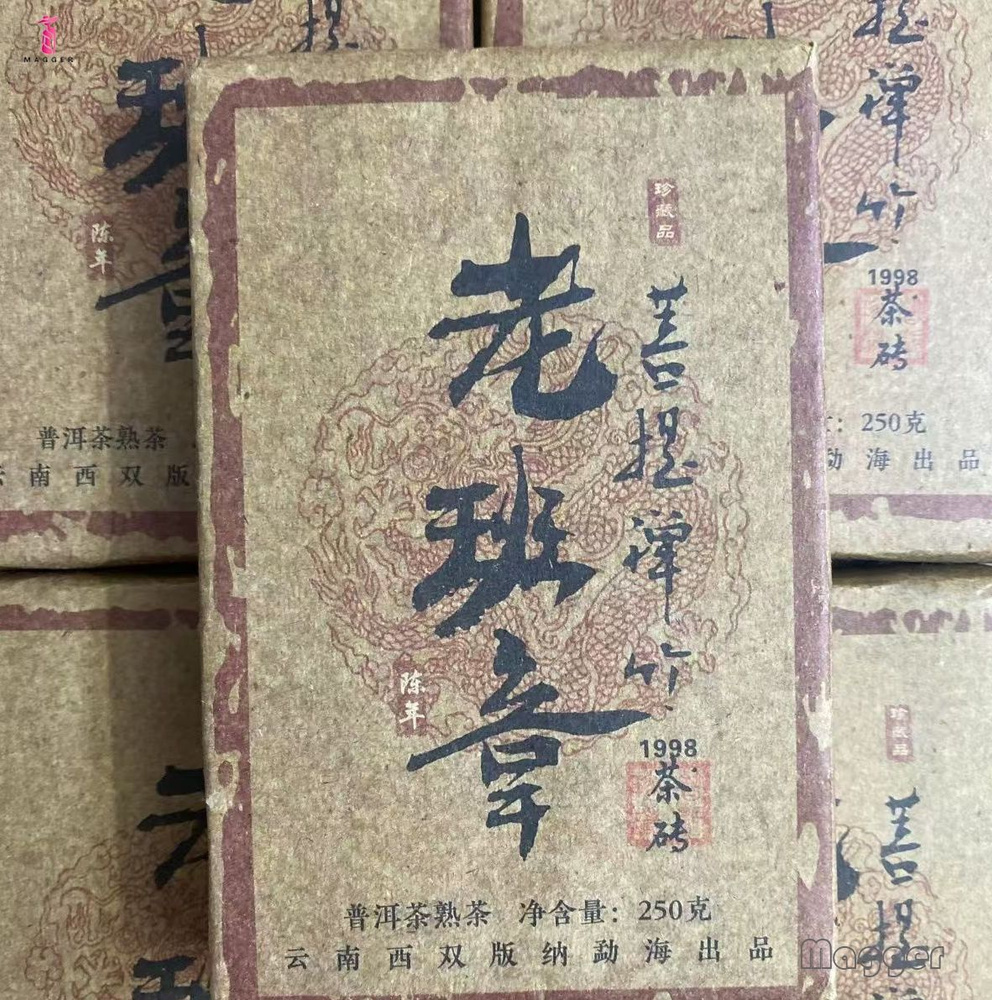 MAGGER
珍藏品
老班章
菩提禅竹
陈年
1998
茶砖
普洱茶熟茶 净含量：250克
云南西双版纳勐海出品
提
班章
陈年
普洱茶熟茶
云南西双版
提禅竹
1998
茶砖
250克
勐海出品
珍藏品
菩提
Magger